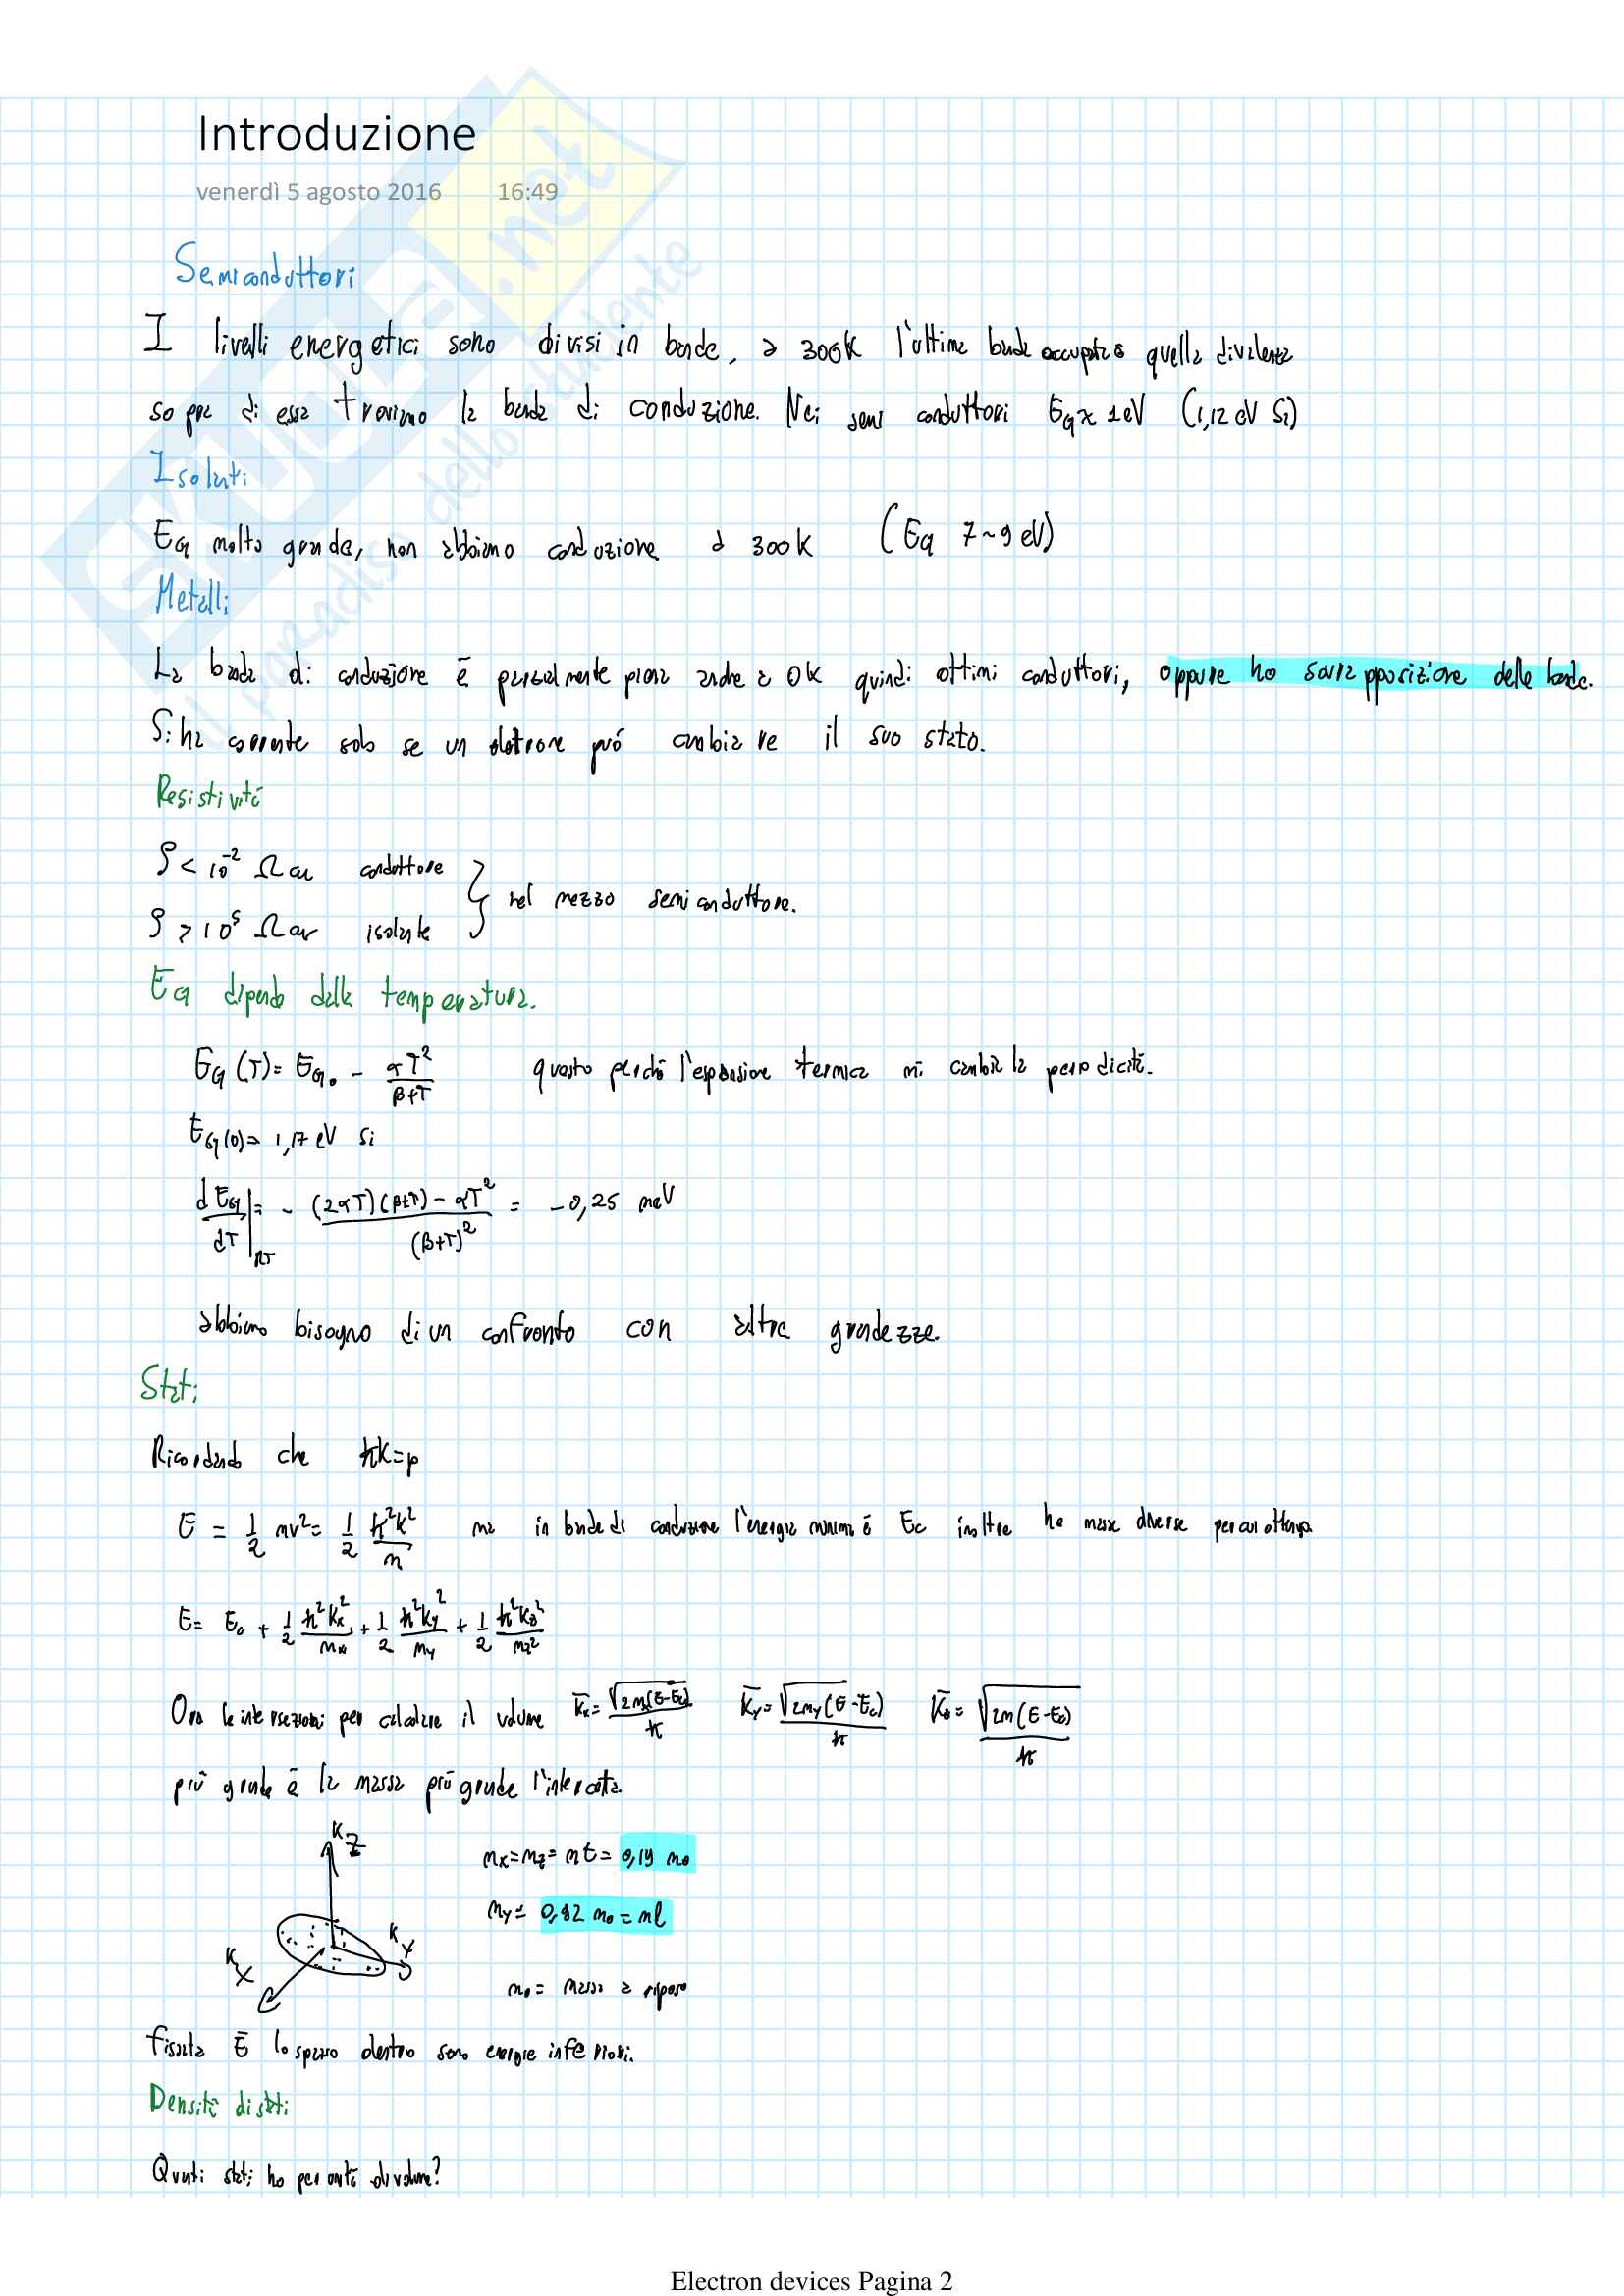 Introduzione
venerdì 5 agosto 2016 16:49
SKUOLA.net
il paradiso dello studente
Semiconduttori
I livelli energetici sono divisi in bande, a 300K l'ultima banda occupata è quella di valenza
sopra di essa troviamo la banda di conduzione. Nei semi conduttori EG ≈ 1eV (1,12 eV Si)
Isolanti
EG molto grande, non abbiamo conduzione a 300K (EG 7~9 eV)
Metalli
La banda di conduzione è parzialmente piena anche a 0K quindi ottimi conduttori, oppure ho sovrapposizione delle bande.
Si ha corrente solo se un elettrone può cambiare il suo stato.
Resistività
ρ < 10⁻² Ω cm conduttore
} nel mezzo semiconduttore.
ρ > 10⁵ Ω cm isolante
EG dipende dalla temperatura.
EG (T) = EG0 - αT²/(β+T) questo perché l'espansione termica mi cambia la periodicità.
EG(0) = 1,17 eV Si
dEG/dT |RT = - ((2αT)(β+T) - αT²)/(β+T)² = -0,25 meV
abbiamo bisogno di un confronto con altre grandezze.
Stati
Ricordando che ħK=p
E = 1/2 mv² = 1/2 ħ²K²/m ma in banda di conduzione l'energia minima è Ec inoltre ho masse diverse per cui ottengo
E = Ec + 1/2 ħ²Kx²/mx + 1/2 ħ²Ky²/my + 1/2 ħ²Kz²/mz²
Ora le intersezioni per calcolare il volume K̄x = √(2mx(Ē-Ec))/ħ K̄y = √(2my(Ē-Ec))/ħ K̄z = √(2m(Ē-Ec))/ħ
più grande è la massa più grande l'intercetta.
KZ
mx=mz= mt = 0,19 m0
my = 0,92 m0 = ml
Ky
Kx
m0 = massa a riposo
fissata Ē lo spazio dentro sono energie inferiori.
Densità di stati
Quanti stati ho per unità di volume?
Electron devices Pagina 2